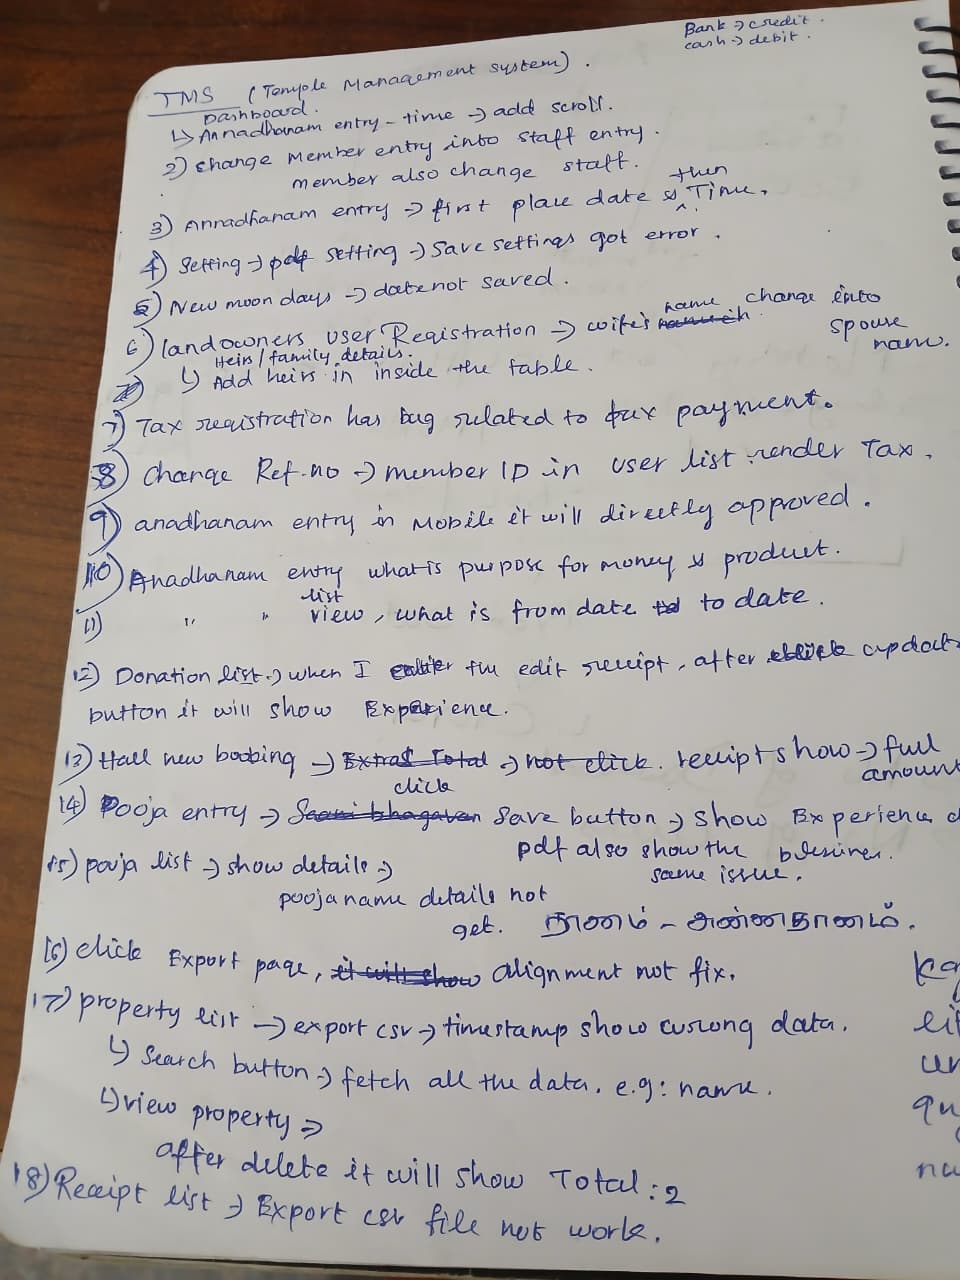 Bank → credit.
cash → debit.
TMS (Temple Management system).
Dashboard.
↳ Annadhanam entry - time → add scroll.
2) change Member entry into staff entry.
member also change staff.
3) Annadhanam entry → first place date & then Time.
4) Setting → pdf setting → Save settings got error.
5) New moon days → date not saved.
6) landowners user Registration → wife's name change into
spouse
name.
Heirs / family details.
↳ Add heirs in inside the table.
7) Tax registration has bug related to tax payment.
8) change Ref.no → member ID in user list render Tax.
9) anadhanam entry in Mobile it will directly approved.
10) Anadhanam entry what is purpose for money & product.
11) " " list view, what is from date to date.
12) Donation list → when I the edit receipt, after update
button it will show Experience.
13) Hall new booking → Extras Total → not click. receipt show → full
amount
click
14) Pooja entry → Saami bhagavan Save button → show Experience
pdf also show the
same issue.
15) pooja list → show details →
pooja name details not
get. தானம் - அன்னதானம்.
16) click Export page, it will show alignment not fix.
17) property list → export csv → timestamp show wrong data.
↳ Search button → fetch all the data. e.g: name.
↳ view property →
after delete it will show Total: 2
18) Receipt list → Export csv file not work.